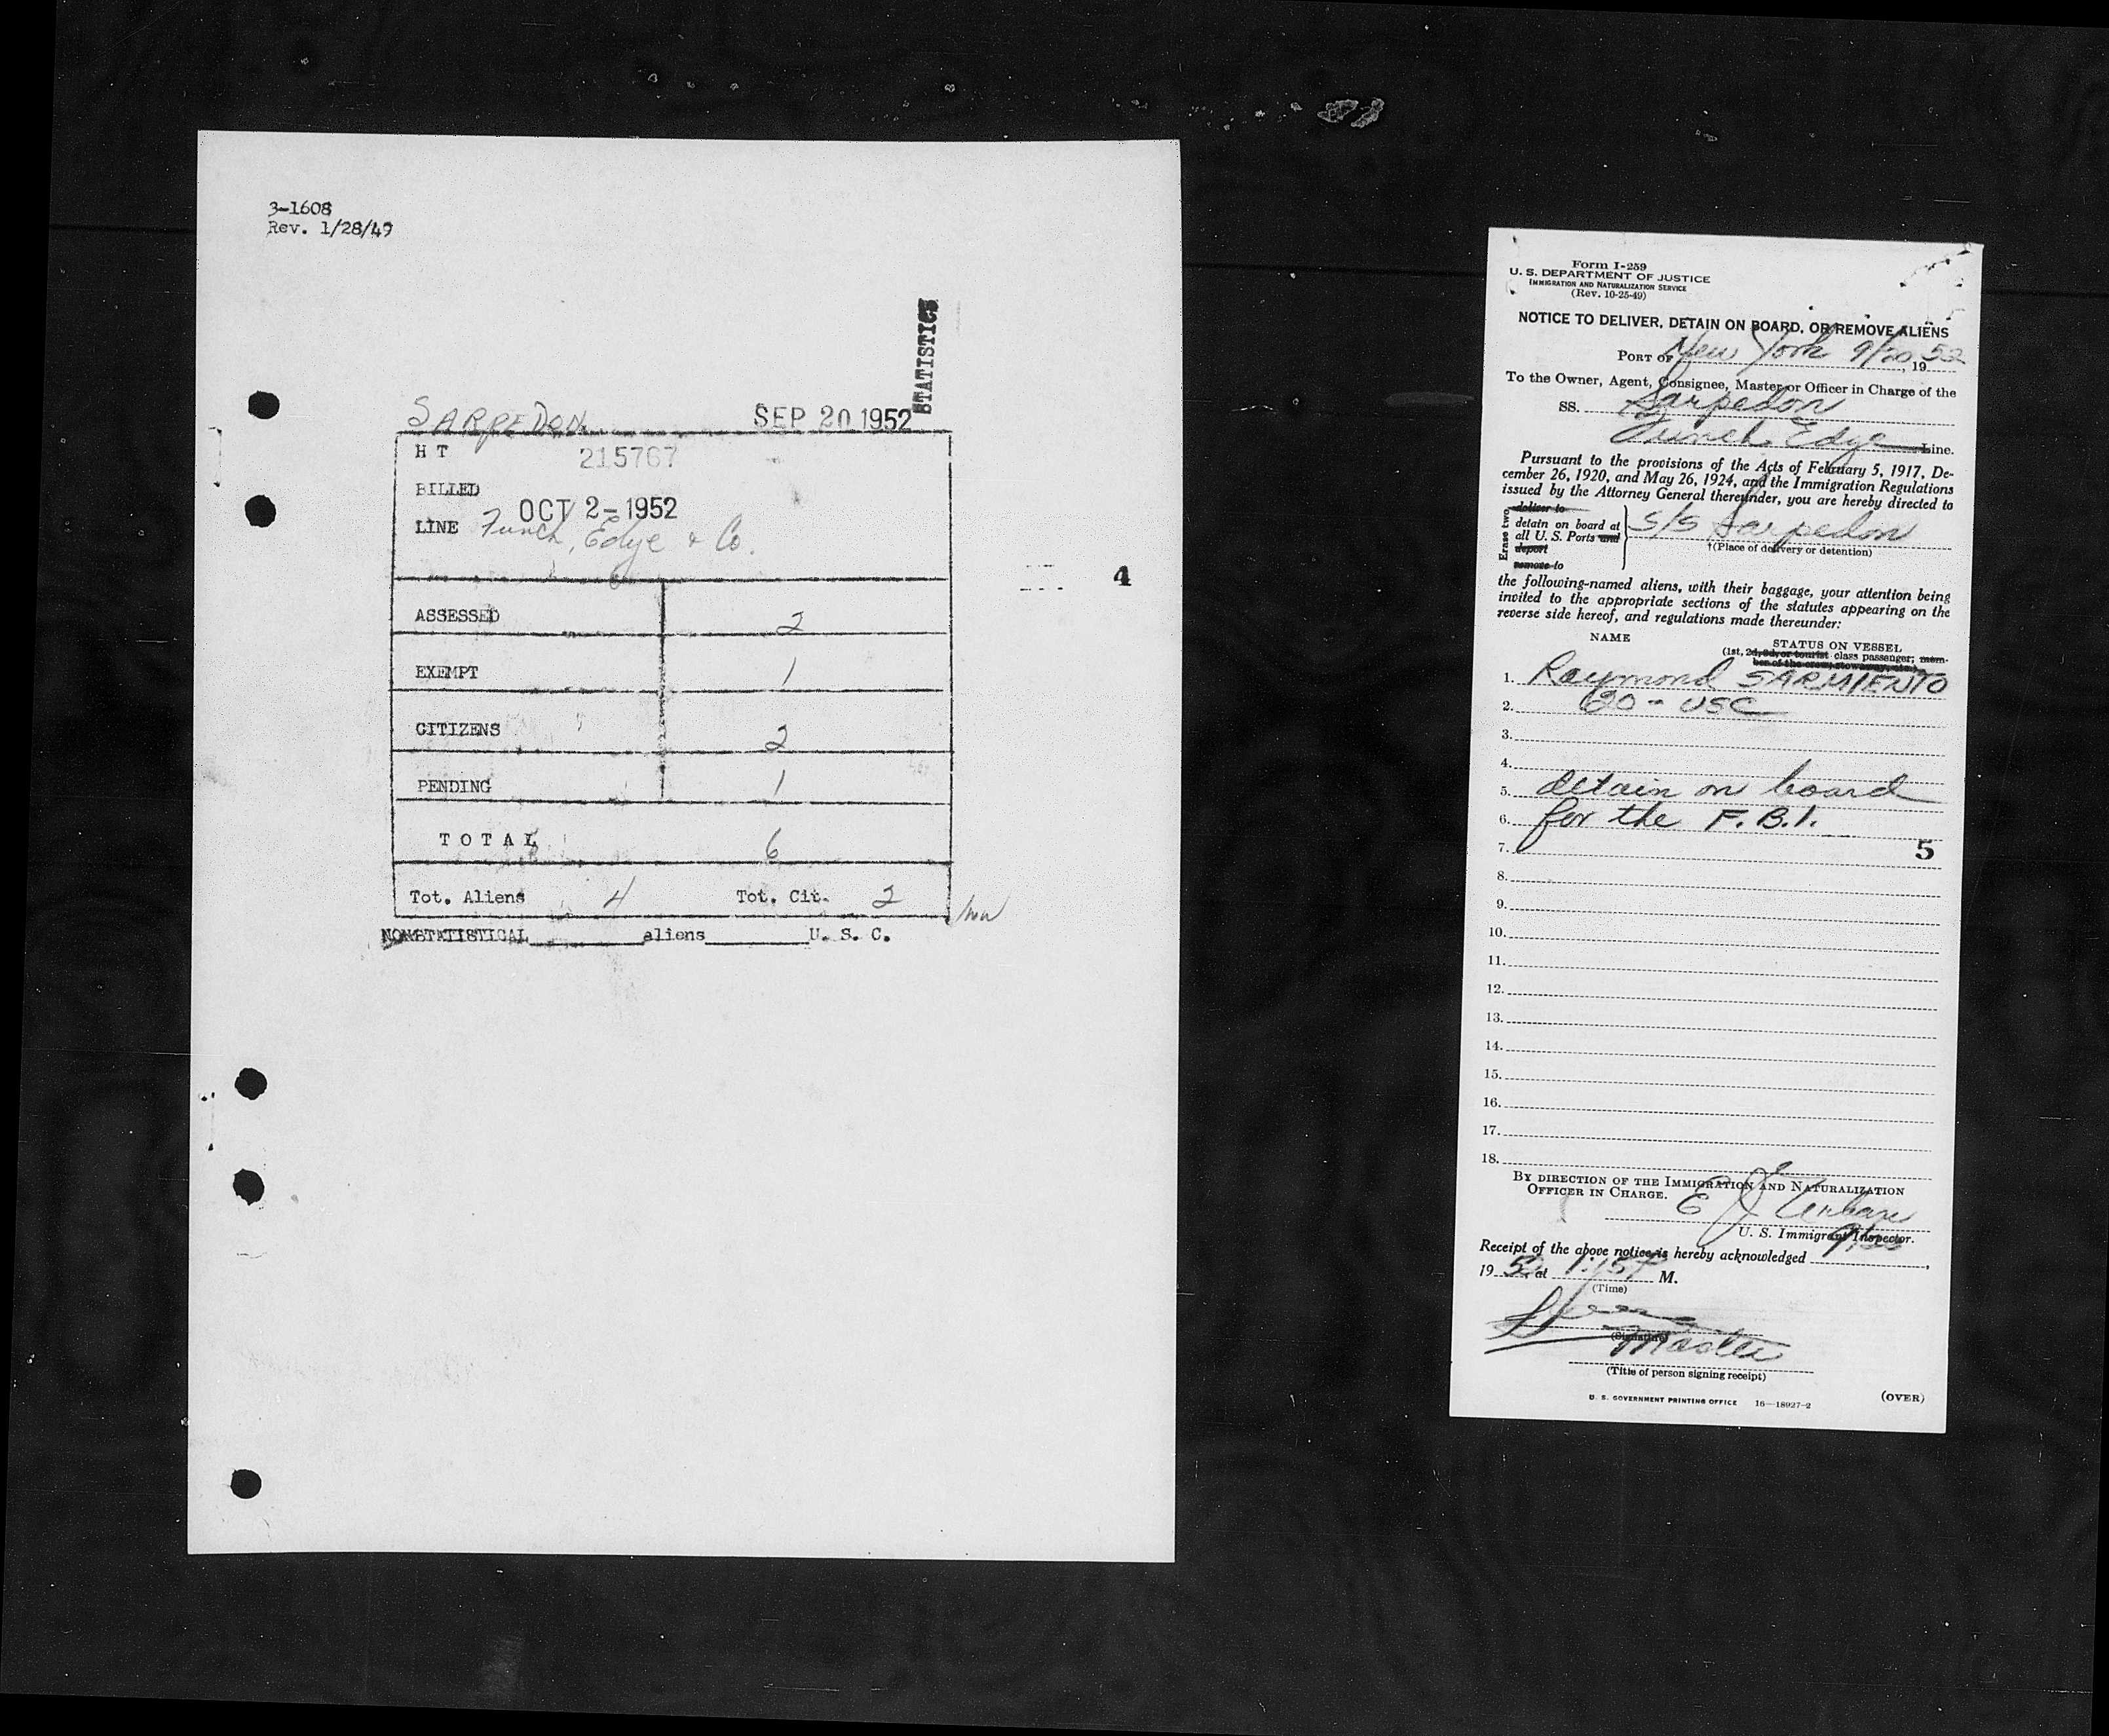 3-1608
Rev. 1/28/49
STATISTICS
SARPEDON SEP 20 1952
H T 215767
BILLED
OCT 2-1952
LINE Funch, Edye & Co.
4
ASSESSED 2
EXEMPT 1
CITIZENS 2
PENDING 1
TOTAL 6
Tot. Aliens 4 Tot. Cit. 2
NONSTATISTICAL aliens U. S. C.
Form I-259
U. S. DEPARTMENT OF JUSTICE
IMMIGRATION AND NATURALIZATION SERVICE
(Rev. 10-25-49)
NOTICE TO DELIVER, DETAIN ON BOARD, OR REMOVE ALIENS
PORT OF New York 9/20, 1952
To the Owner, Agent, Consignee, Master or Officer in Charge of the
SS. Sarpedon
Funch Edye Line.
Pursuant to the provisions of the Acts of February 5, 1917, De-
cember 26, 1920, and May 26, 1924, and the Immigration Regulations
issued by the Attorney General thereunder, you are hereby directed to
Erase two
deliver to
detain on board at
all U. S. Ports and
deport
remove to
S/S Sarpedon
†(Place of delivery or detention)
the following-named aliens, with their baggage, your attention being
invited to the appropriate sections of the statutes appearing on the
reverse side hereof, and regulations made thereunder:
NAME STATUS ON VESSEL
(1st, 2d, 3d, or tourist class passenger; mem-
ber of the crew; stowaway, etc.)
1. Raymond SARMIENTO
2. 20 - USC
3.
4.
5. detain on board
6. for the F.B.I.
7.
5
8.
9.
10.
11.
12.
13.
14.
15.
16.
17.
18.
BY DIRECTION OF THE IMMIGRATION AND NATURALIZATION
OFFICER IN CHARGE.
E J
U. S. Immigrant Inspector.
Receipt of the above notice is hereby acknowledged 9/20,
1952, at 1:15 P M.
(Time)
(Signature)
Master
(Title of person signing receipt)
U. S. GOVERNMENT PRINTING OFFICE 16—18927-2 (OVER)